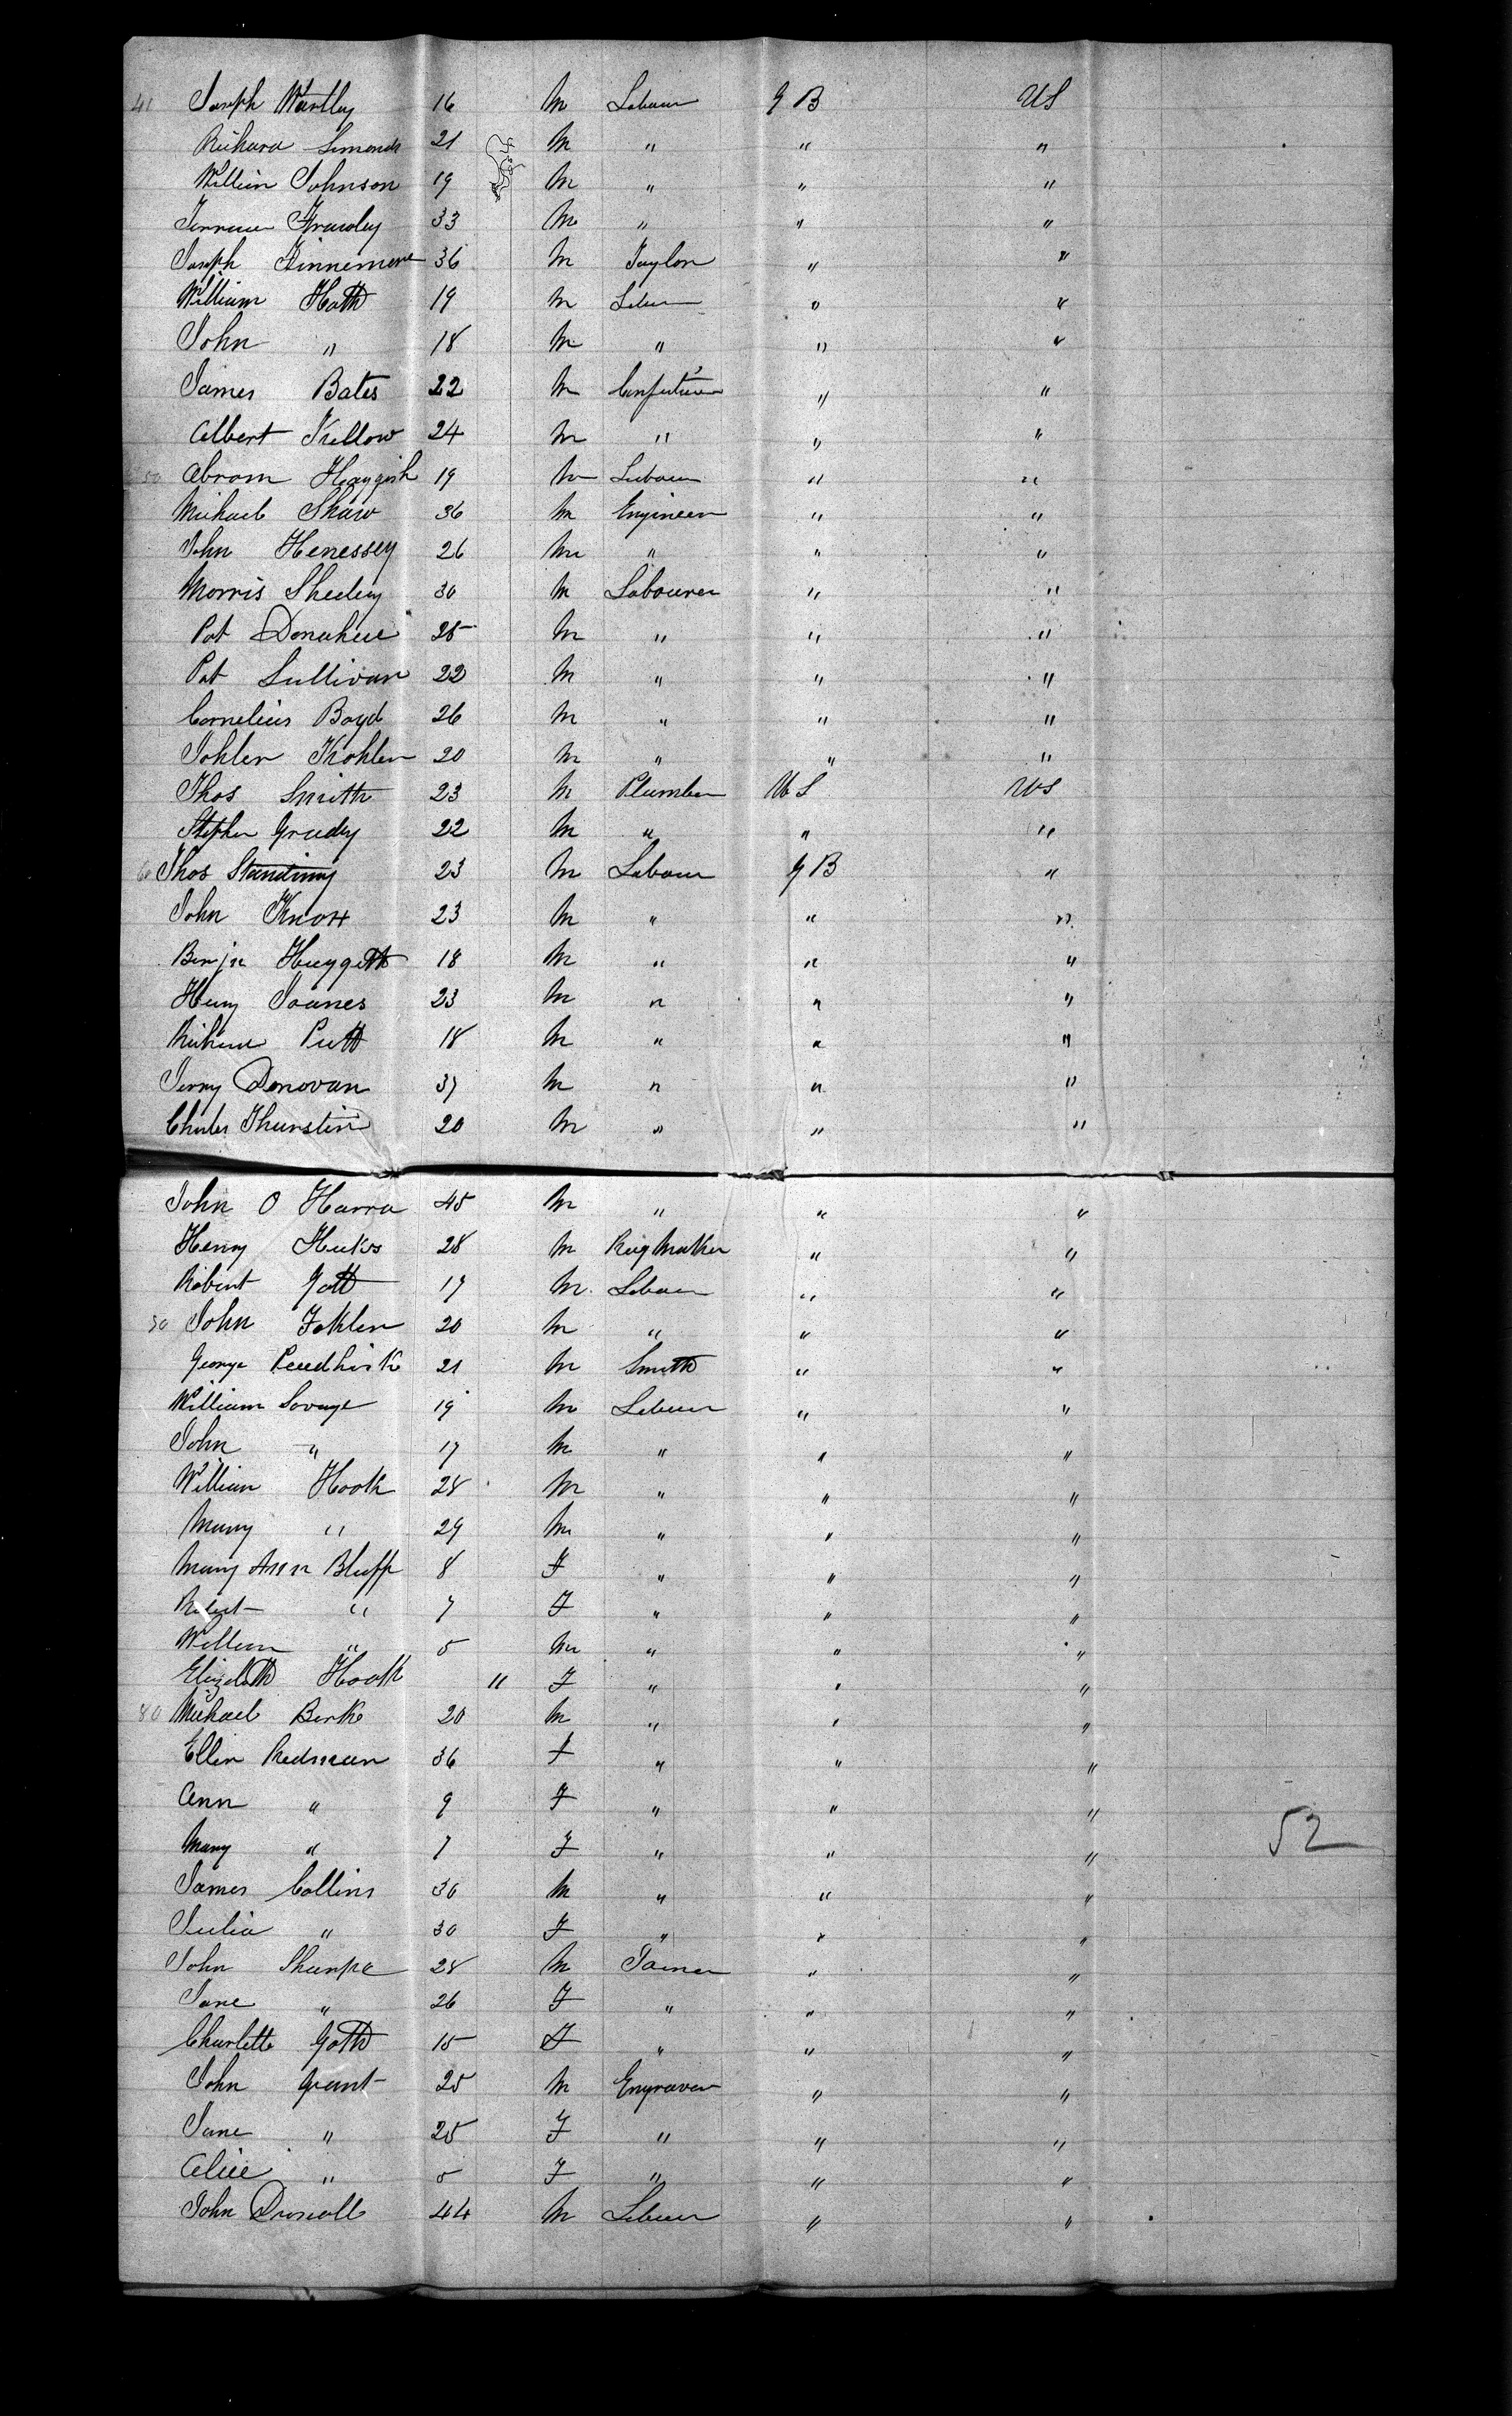 41 Joseph Wartley 16 M Labour G B US
Richard Simonds 21 M " " "
William Johnson 19 M " " "
Frawley 33 M " " "
Joseph Finnemore 36 M Taylor " "
William Hoth 19 M Labour " "
John " 18 M " " "
James Bates 22 M " "
Albert Kellow 24 M " " "
50 Abram 19 M Labour " "
Michael Shaw 36 M Engineer " "
John Henessey 26 M " " "
Morris Sheehy 30 M Labourer " "
Pat Donahue 25 M " " "
Pat Sullivan 22 M " " "
Cornelius Boyd 26 M " " "
Kohler 20 M " " "
Thos Smith 23 M Plumber U S US
Stephen Grady 22 M " " "
60 Thos Standing 23 M Labour G B "
John Knox 23 M " " "
Benjn Huggett 18 M " " "
Henry Joanes 23 M " " "
Richard Putt 18 M " " "
Jerry Donovan 37 M " " "
Charles Thurstin 20 M " " "
John O Harra 45 M " " "
Henry Huks 28 M Rug Maker " "
Robert Gott 17 M Labour " "
70 John 20 M " " "
George 21 M Smith " "
William Savage 19 M Labour " "
John " 17 M " " "
William Hook 28 M " " "
Mary " 29 M " " "
Mary Ann Bluff 8 F " " "
Robert " 7 F " " "
William " 5 M " " "
Elizabeth Hook " F " " "
80 Michael Berke 20 M " " "
Ellen Redman 36 F " " "
Ann " 9 F " " "
Mary " 7 F " " " 52
James Collins 30 M " " "
Julia " 30 F " " "
John Sharpe 28 M " "
Jane " 26 F " " "
Charlette Goth 15 F " " "
John Grant 25 M Engraver " "
Jane " 25 F " " "
Alice " 5 F " " "
John Driscoll 44 M Labour " "